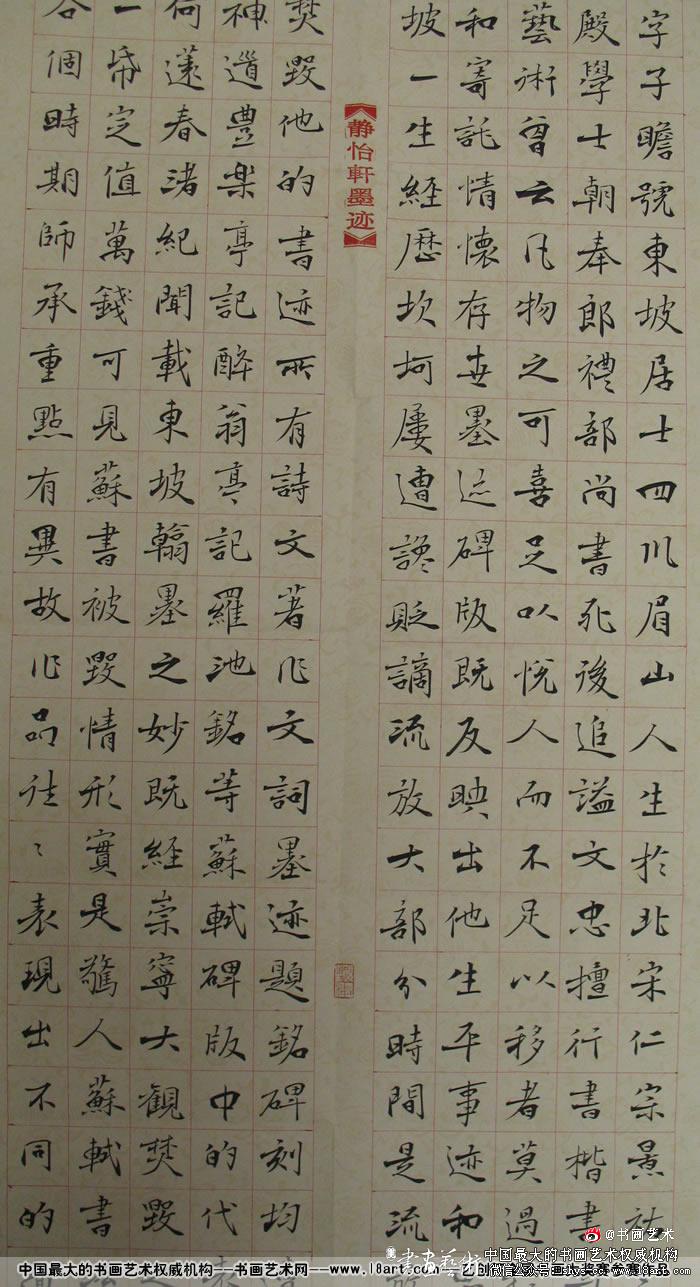 字子瞻號東坡居士四川眉山人生於北宋仁宗景祐
殿學士朝奉郎禮部尚書死後追謚文忠擅行書楷書
藝術曾云凡物之可喜足以悅人而不足以移者莫過
和寄託情懷存世墨迹碑版既反映出他生平事迹和
坡一生經歷坎坷屢遭讒貶謫流放大部分時間是流
静怡軒墨迹
焚毀他的書迹所有詩文著作文詞墨迹題銘碑刻均
神道豐樂亭記醉翁亭記羅池銘等蘇軾碑版中的代
何薳春渚紀聞載東坡翰墨之妙既經崇寧大觀焚毀
一帋定值萬錢可見蘇書被毀情形實是驚人蘇軾書
各個時期師承重點有異故作品往々表現出不同的
@书画艺术
中国最大的书画艺术权威机构---书画艺术网---www.18art.com---艺创微信公众号画坛奖赛参赛作品
中国最大的书画艺术权威机构